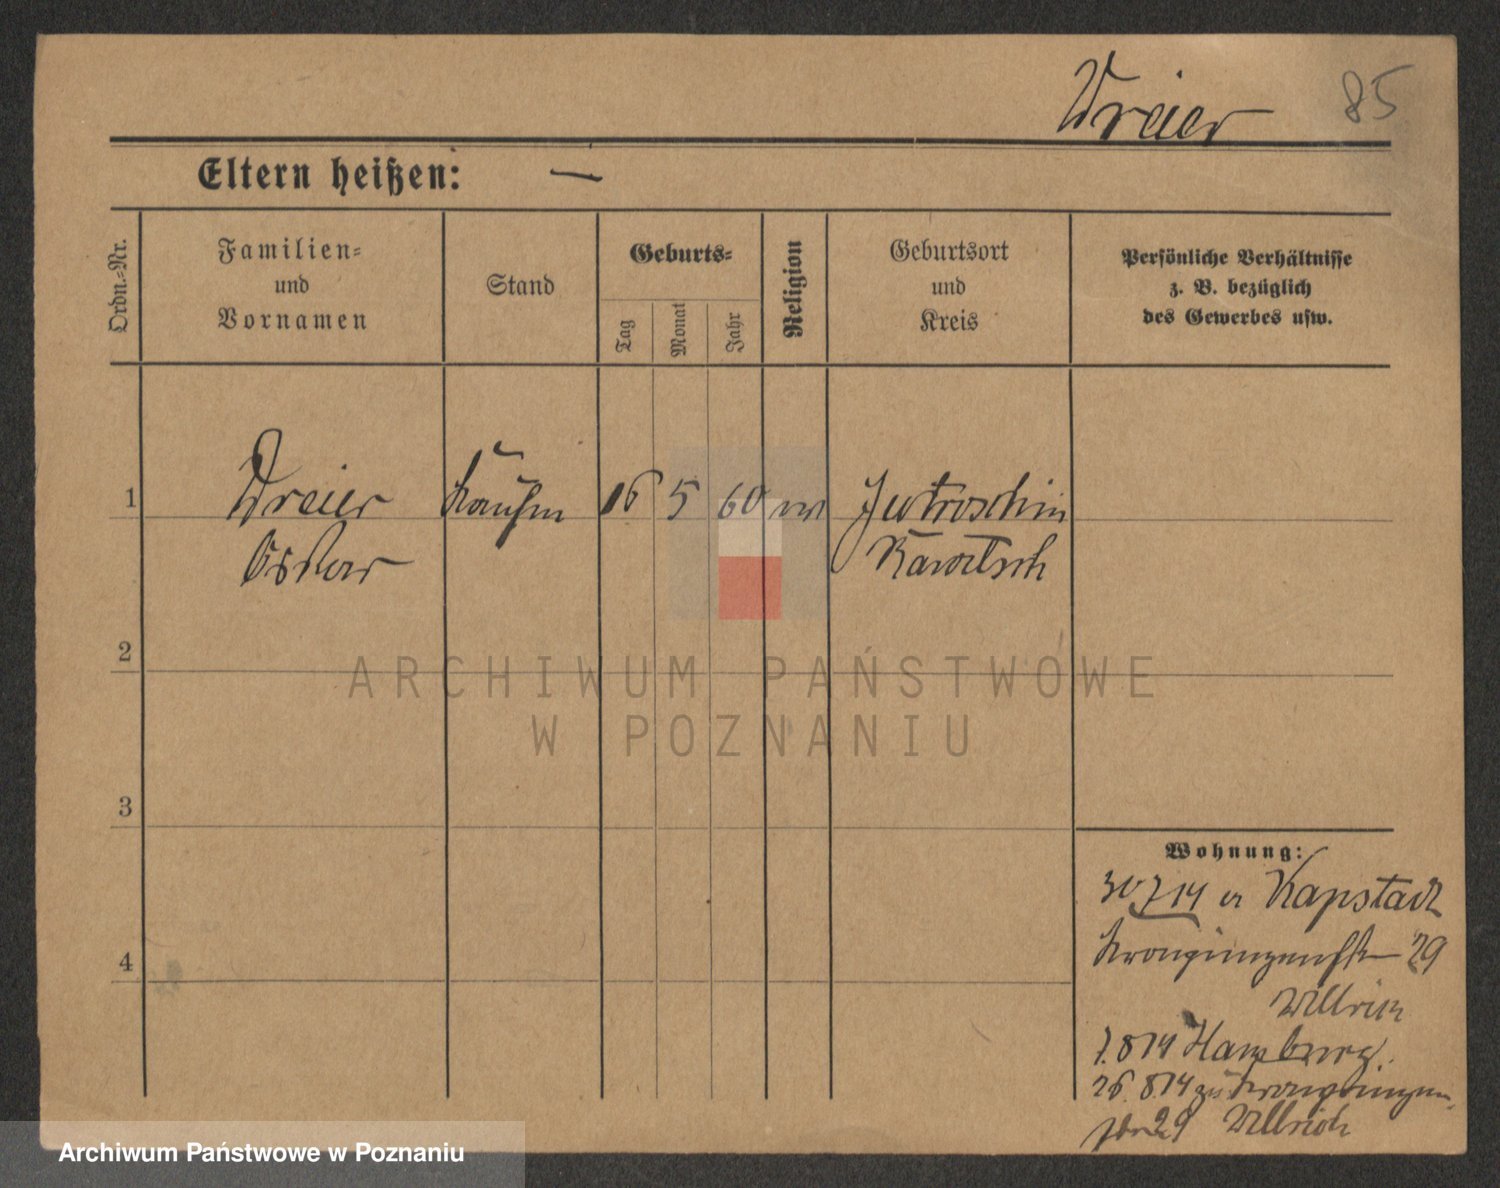 Dreier 85
Eltern heißen: —
Ordn.=Nr.
Familien=
und
Vornamen
Stand
Geburts=
Tag
Monat
Jahr
Religion
Geburtsort
und
Kreis
Persönliche Verhältnisse
z. B. bezüglich
des Gewerbes usw.
1 Dreier Kaufm 16 5 60 Jutroschin
Oskar Rawitsch
2
3
4
Wohnung:
30 7 14 Kapstadt
Kronprinzenstr 29
Ullrich
7.8 14 Hamburg.
26. 8. 14 zu Kronprinzen
str 29 Ullrich
ARCHIWUM PAŃSTWOWE
W POZNANIU
Archiwum Państwowe w Poznaniu